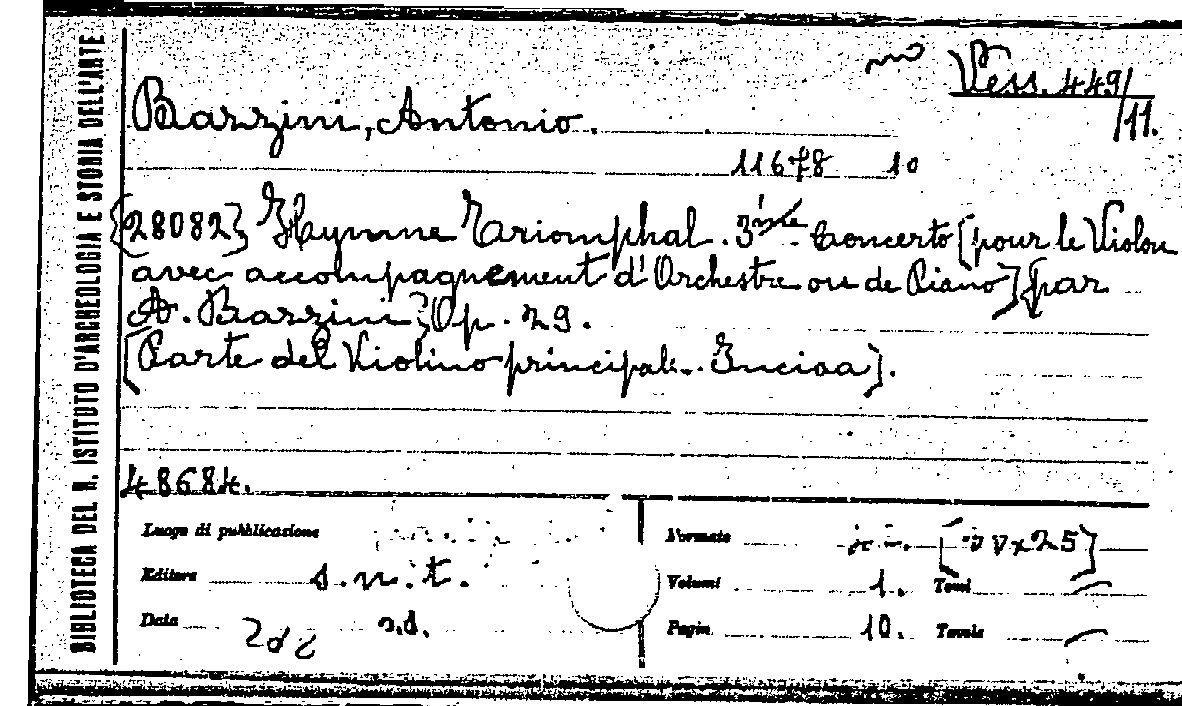 BIBLIOTECA DEL R. ISTITUTO D'ARCHEOLOGIA E STORIA DELL'ARTE
Vess. 449/
11.
Bazzini, Antonio.
11678 10
{28082} Hymne Triomphal. 3ème Concerto [pour le Violon
avec accompagnement d'Orchestre ou de Piano] par
A. Bazzini; Op. 29.
[Parte del Violino principale. Incisa].
48684.
Luogo di pubblicazione
Formato
Editore s.n.t.
Volumi 1. Tomi
Data s.d.
Pagin. 10. Tavole